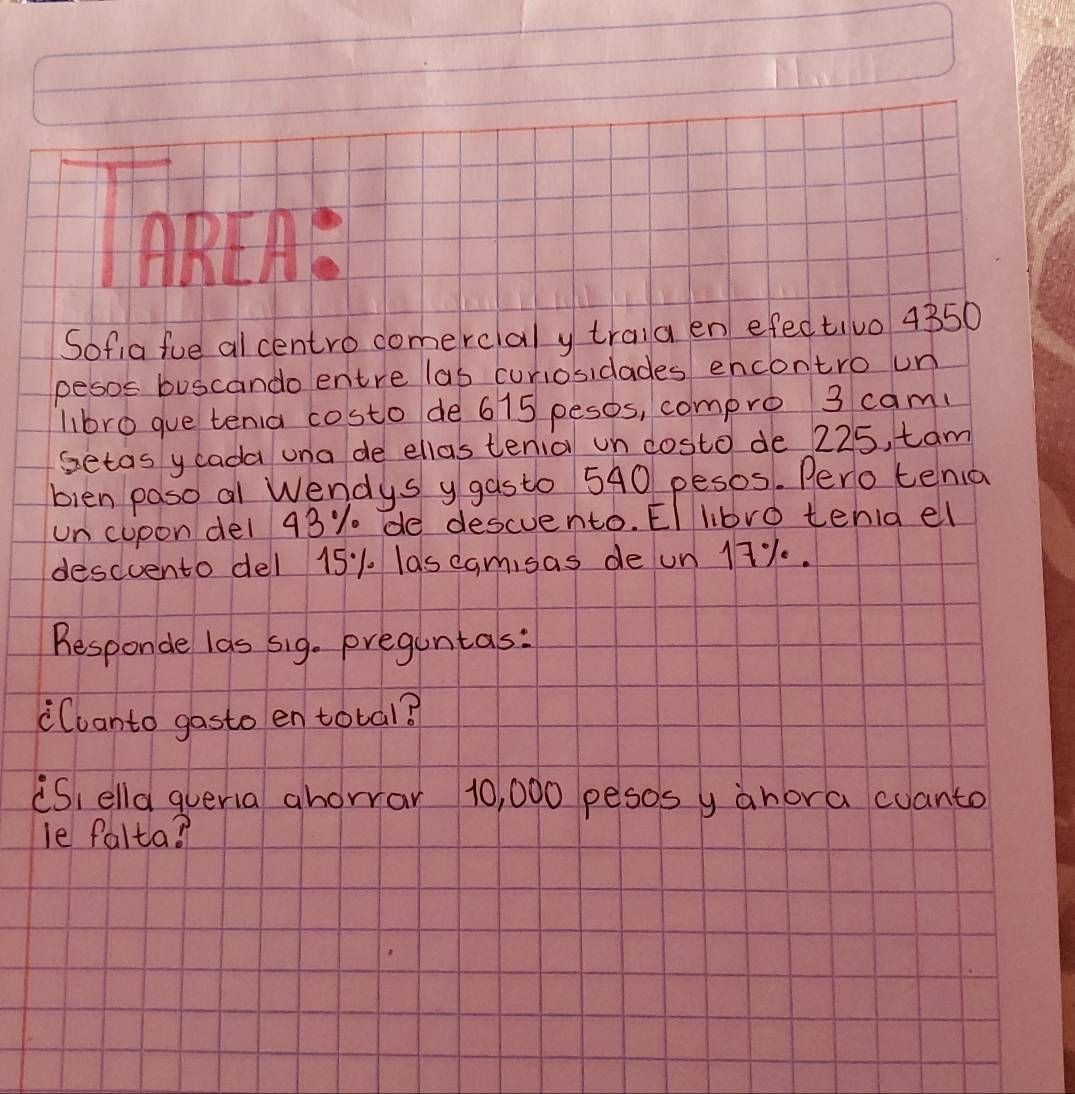 TAREA:
Sofia fue al centro comercial y traia en efectivo 4350
pesos buscando entre las curiosidades encontro un
libro que tenia costo de 615 pesos, compro 3 cami
setas y cada una de ellas tenia un costo de 225, tam
bien paso al Wendys y gasto 540 pesos. Pero tenia
un cupon del 43% de descuento. El libro tenia el
descuento del 15% las camisas de un 17%.
Responde las sig. preguntas:
¿Cuanto gasto en total?
¿Si ella queria ahorrar 10,000 pesos y ahora cuanto
le falta?